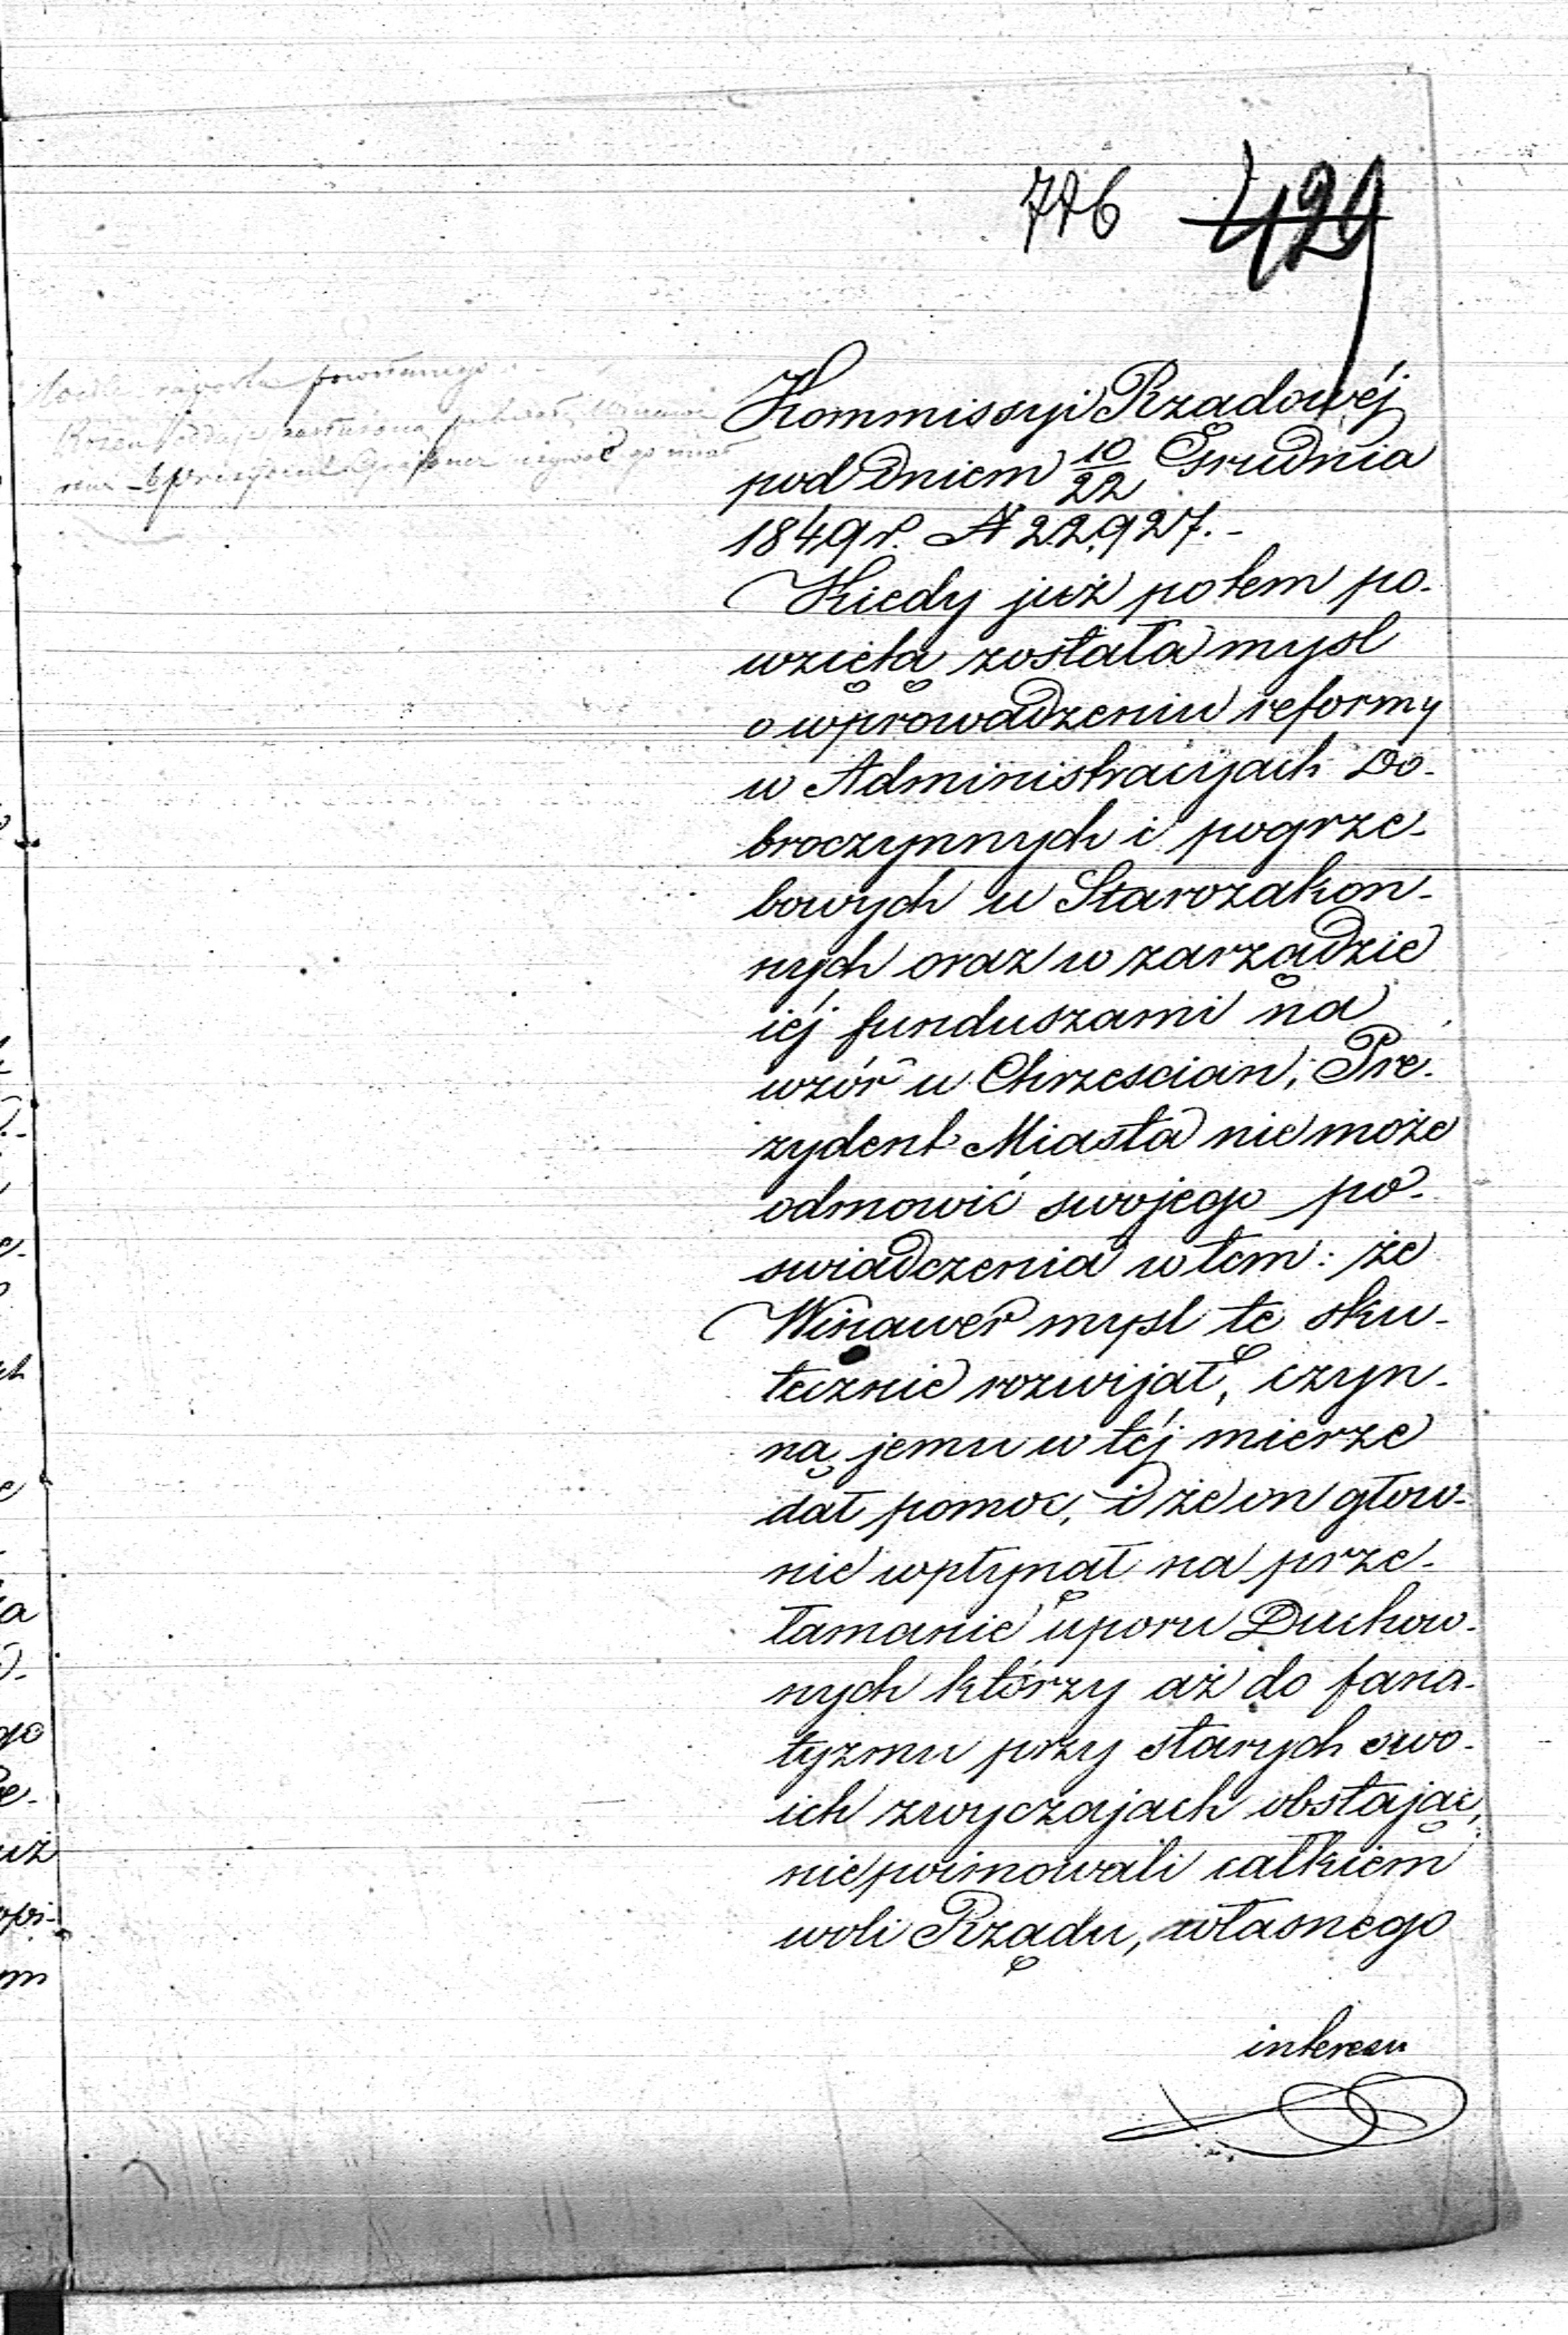 776 429
powołanego
Kommissyi Rządowéj
pod dniem 10/22 Grudnia
1849 r. N 22,927. -
Kiedy już potem po-
wziętą została mysl
o wprowadzeniu reformy
w Administracyjach Do-
broczynnych i pogrze-
bowych u Starozakon-
nych oraz w zarządzie
iéj funduszami na
wzór u Chrzescian, Pre-
zydent Miasta nie może
odmowić swojego po-
swiadczenia w tem: że
Winawer mysl tę sku-
tecznie rozwijał, czyn-
ną jemu w téj mierze
dał pomoc, i że on głow-
nie wpłynął na prze-
łamanie uporu Duchow-
nych którzy aż do fana-
tyzmu przy starych swo-
ich zwyczajach obstając,
nie poimowali całkiem
woli Rządu, własnego
interesu